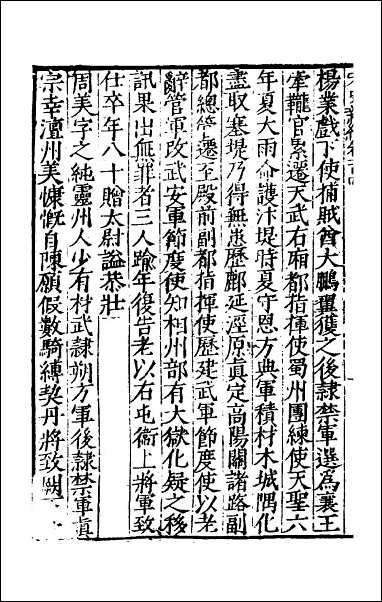 楊業戲下使捕賊酋大鵬翼獲之後隸禁軍選為襄王
牽鞚官累遷天武右廂都指揮使蜀州團練使天聖六
年夏大雨命護汴堤時夏守恩方典軍積材木城隅化
盡取塞堤乃得無患歷鄜延涇原真定高陽關諸路副
都總管遷至殿前副都指揮使歷建武軍節度使以老
辭管軍改武安軍節度使知相州部有大獄化疑之移
訊果出無罪者三人踰年復告老以右屯衛上將軍致
仕卒年八十贈太尉謚恭壯
周美字之純靈州人少有材武隸朔方軍後隸禁軍真
宗幸澶州美慷慨自陳願假數騎縛契丹將致闕下